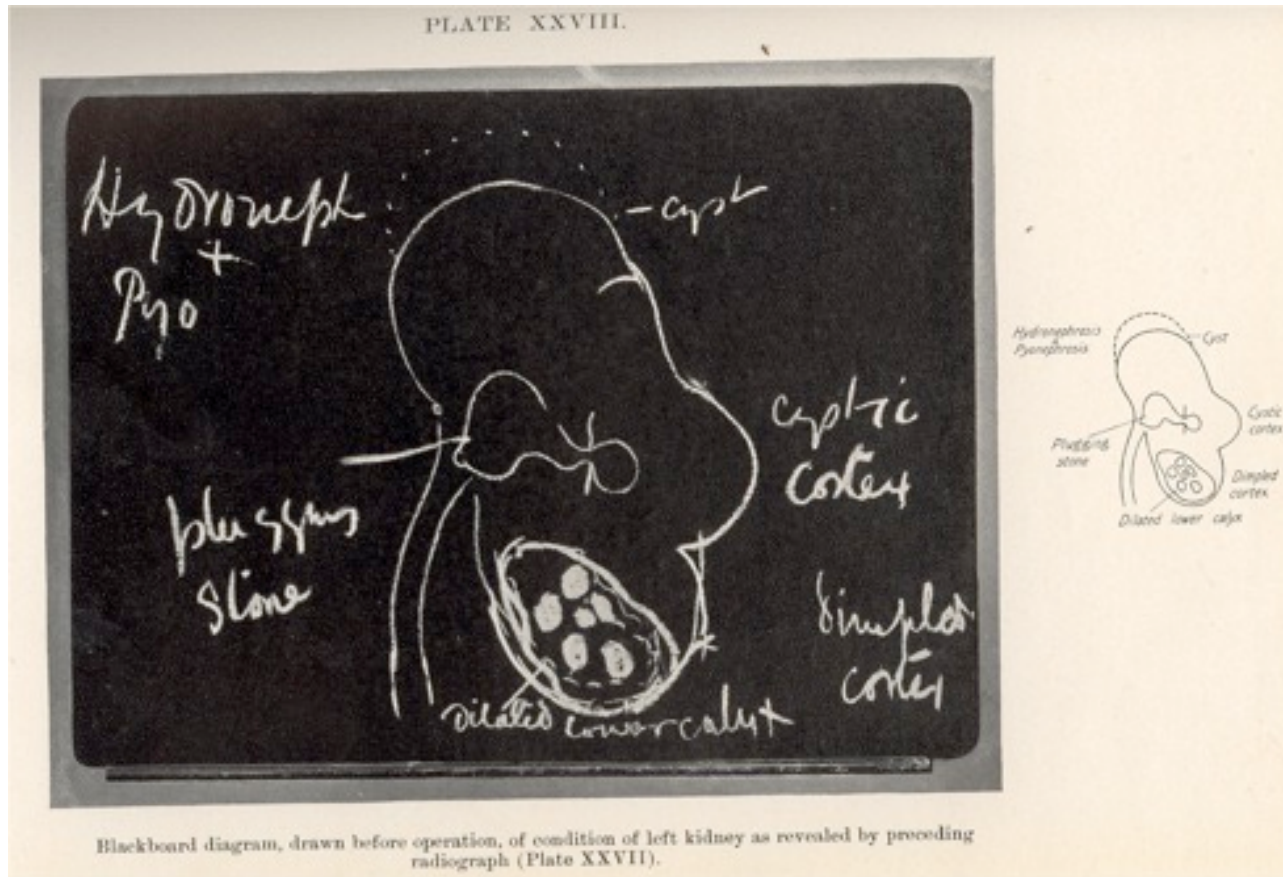 PLATE XXVIII.
Hydroneph
+
Pyo
- cyst
cystic
cortex
plugging
stone
dimpled
cortex
Dilated lower calyx
Hydronephrosis
&
Pyonephrosis
Cyst
Cystic
cortex
Plugging
stone
Dimpled
cortex
Dilated lower calyx
Blackboard diagram, drawn before operation, of condition of left kidney as revealed by preceding
radiograph (Plate XXVII).